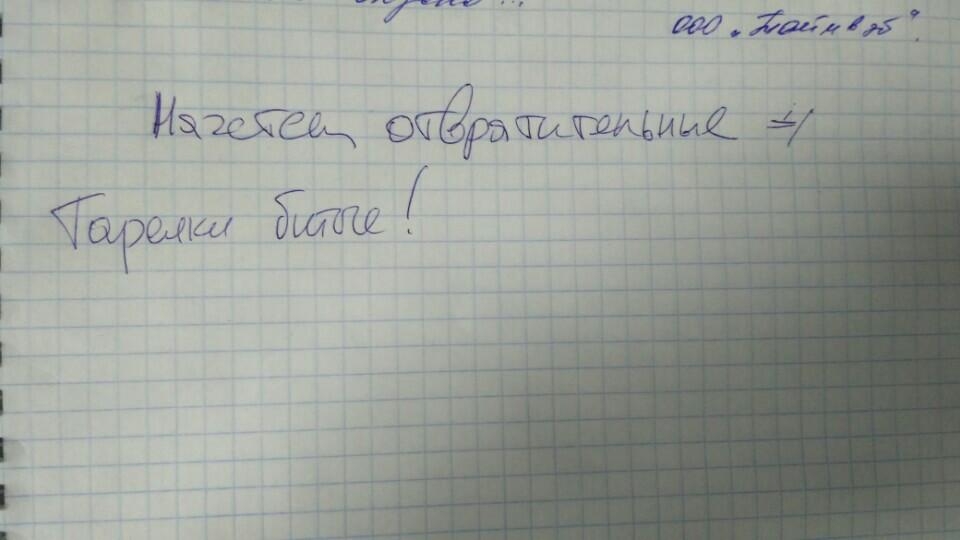 ООО „Таймвэб“.
Нагетсы отвратительные =/
Тарелки битые!